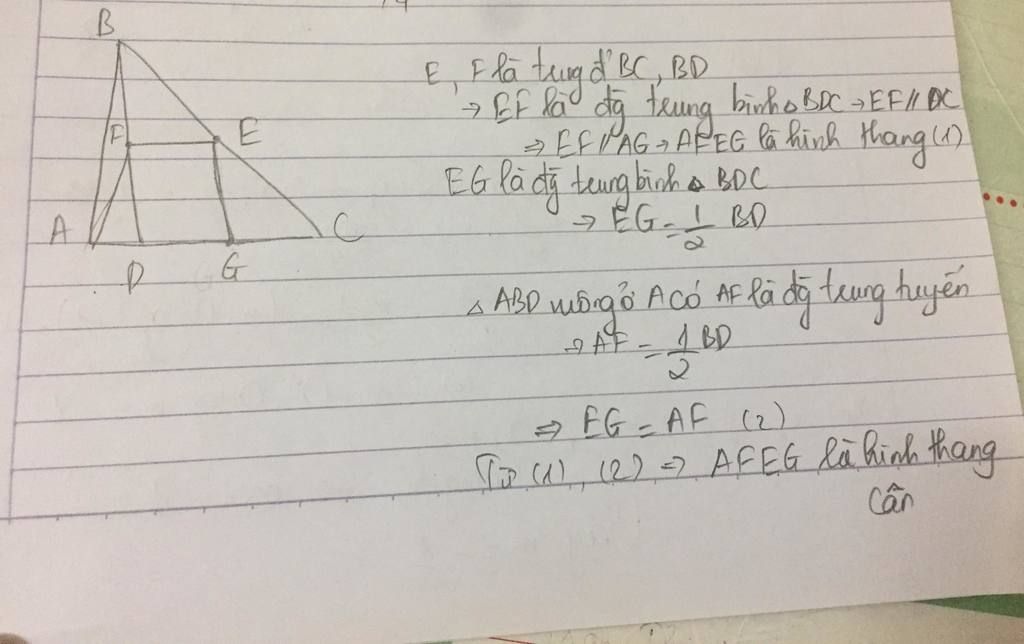 B
E, F là trung đ' BC, BD
→ EF là đg̃ trung bình △ BDC → EF // DC
F
E
⇒ EF // AG → AFEG là hình thang (1)
EG là đg̃ trung bình △ BDC
A
C
→ EG = 1/2 BD
D
G
△ ABD vuông ở A có AF là đg̃ trung tuyến
→ AF = 1/2 BD
⇒ EG = AF (2)
Từ (1), (2) ⇒ AFEG là hình thang
cân